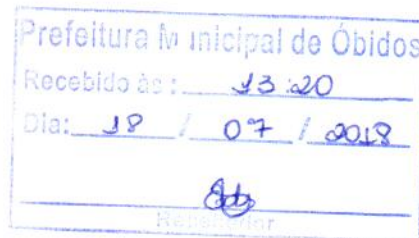 Prefeitura Municipal de Óbidos
Recebido às: 13:20
Dia: 18 / 07 / 2018
Recebedor